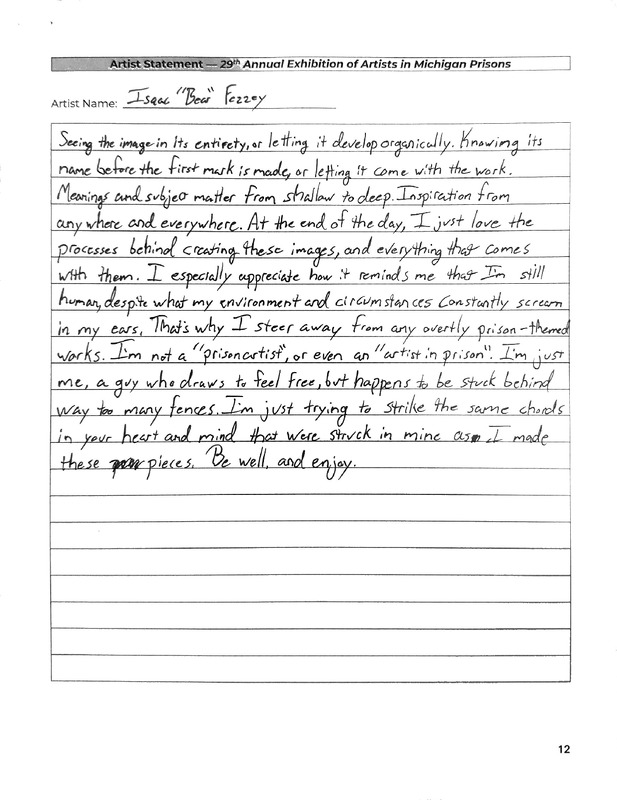 Artist Statement — 29th Annual Exhibition of Artists in Michigan Prisons
Artist Name: Isaac "Bear" Fezzey
Seeing the image in its entirety, or letting it develop organically. Knowing its
name before the first mark is made, or letting it come with the work.
Meanings and subject matter from shallow to deep. Inspiration from
anywhere and everywhere. At the end of the day, I just love the
processes behind creating these images, and everything that comes
with them. I especially appreciate how it reminds me that I'm still
human, despite what my environment and circumstances constantly scream
in my ears. That's why I steer away from any overtly prison-themed
works. I'm not a "prison artist", or even an "artist in prison". I'm just
me, a guy who draws to feel free, but happens to be stuck behind
way too many fences. I'm just trying to strike the same chords
in your heart and mind that were struck in mine as I made
these pieces. Be well, and enjoy.
12